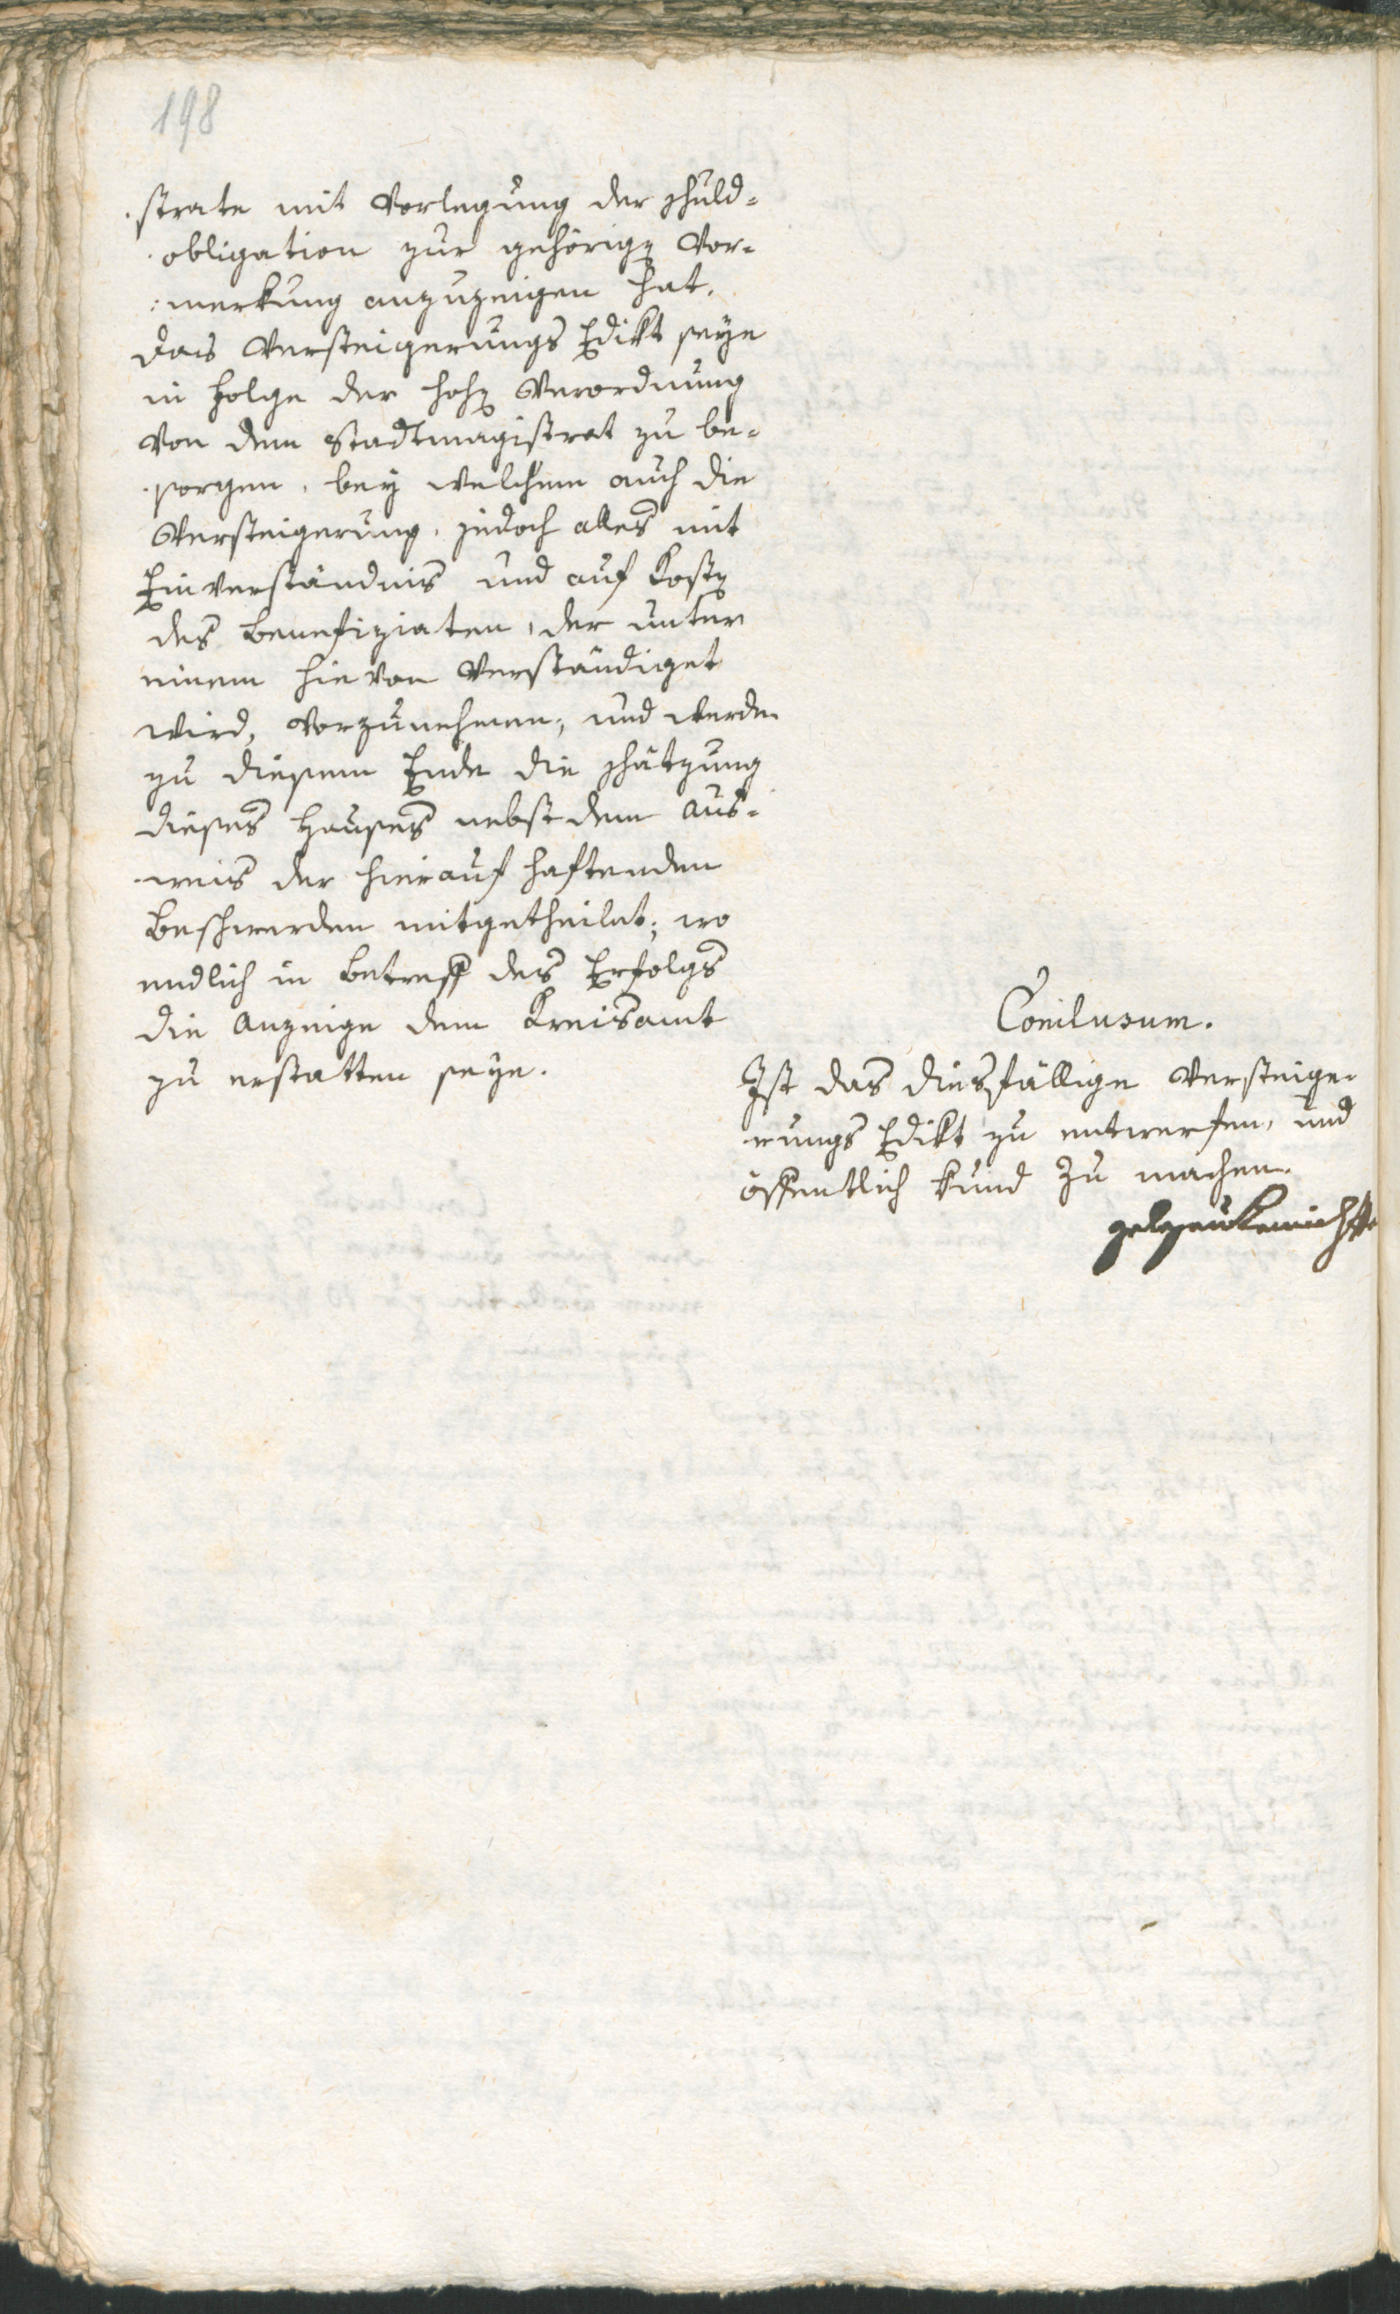 198
strate mit Vorlegung der Schuld=
obligation zur gehörigen Vor=
merkung anzuzeigen hat.
Das Versteigerungs Edikt seye
in Folge der hohen Verordnung
von dem Stadtmagistrat zu be=
sorgen, bey welchem auch die
Versteigerung, jedoch alles mit
Einverständnis und auf Kosten
des Benefiziaten, der unter
einem hievon verständiget
wird, vorzunehmen, und werde
zu diesem Ende die Schätzung
dieses Hauses nebst dem Aus=
weis der hierauf haftenden
Beschwerden mitgetheilet; wo
endlich in Betreff des Erfolgs
die Anzeige dem Kreisamt
zu erstatten seye.
Conclusum.
Ist das diesfällige Versteige=
rungs Edikt zu entwerfen, und
öffentlich kund zu machen.